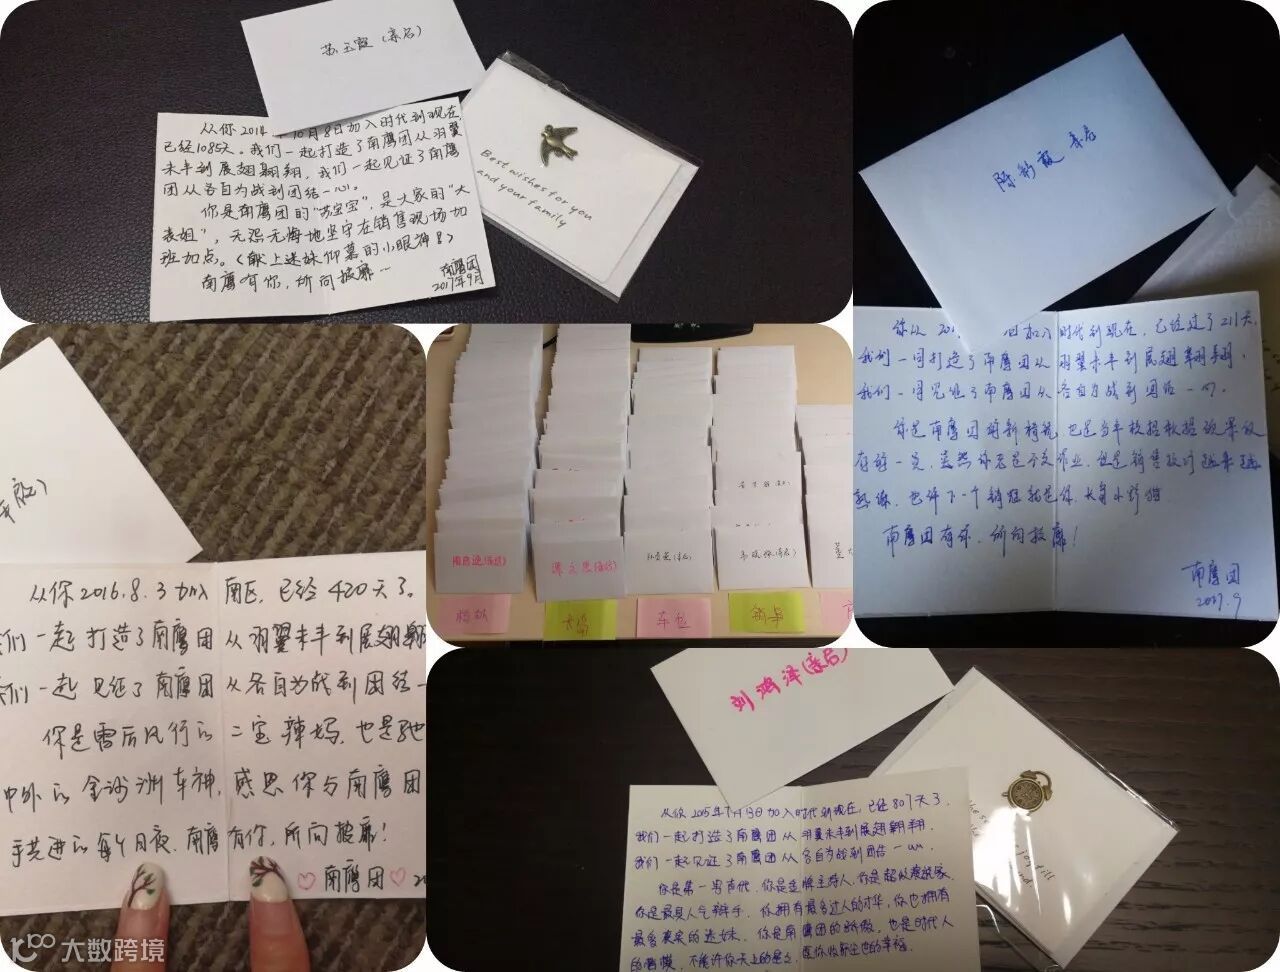 苏玉霞(亲启)
从你2014年10月8日加入时代到现在
已经1085天。我们一起打造了南鹰团从羽翼
未丰到展翅翱翔,我们一起见证了南鹰
团从各自为战到团结一心。
你是南鹰团的“苏宝宝”,是大家的“大
表姐”,无怨无悔地坚守在销售现场加
班加点。(献上迷妹仰慕的小眼神!)
南鹰有你,所向披靡~
南鹰团
2017年9月
Best wishes for you
and your family
陈彩霞 亲启
你从201 日加入时代到现在,已经过了211天,
我们一同打造了南鹰团从羽翼未丰到展翅翱翔,
我们一同见证了南鹰团从各自为战到团结一心。
你是南鹰团的新 也是当年校招
存的一员,虽然你 但是销售技巧越来越
熟练,也许下一个销冠就是你,
南鹰团有你,所向披靡!
南鹰团
2017.9
亲启)
从你2016.8.3加入南区,已经420天了。
我们一起打造了南鹰团从羽翼未丰到展翅翱
我们一起见证了南鹰团从各自为战到团结一
你是雷厉风行的二宝辣妈,也是驰
中外的金沙洲车神,感恩你与南鹰团
手共进的每个日夜,南鹰有你,所向披靡!
♡南鹰团♡ 20
(亲启)
(亲启)
(亲启)
(亲启)
车位
刘鸿泽(亲启)
从你2015年7月13日加入时代到现在,已经807天了,
我们一起打造了南鹰团从羽翼未丰到展翅翱翔,
我们一起见证了南鹰团从各自为战到团结一心。
你是第一男声代,你是金牌主持人,你是超级表演家,
你是最具人气辩手,你拥有最多过人的才华,你也拥有
最多真实的迷妹,你是南鹰团的骄傲,也是时代人
的楷模,
大数跨境